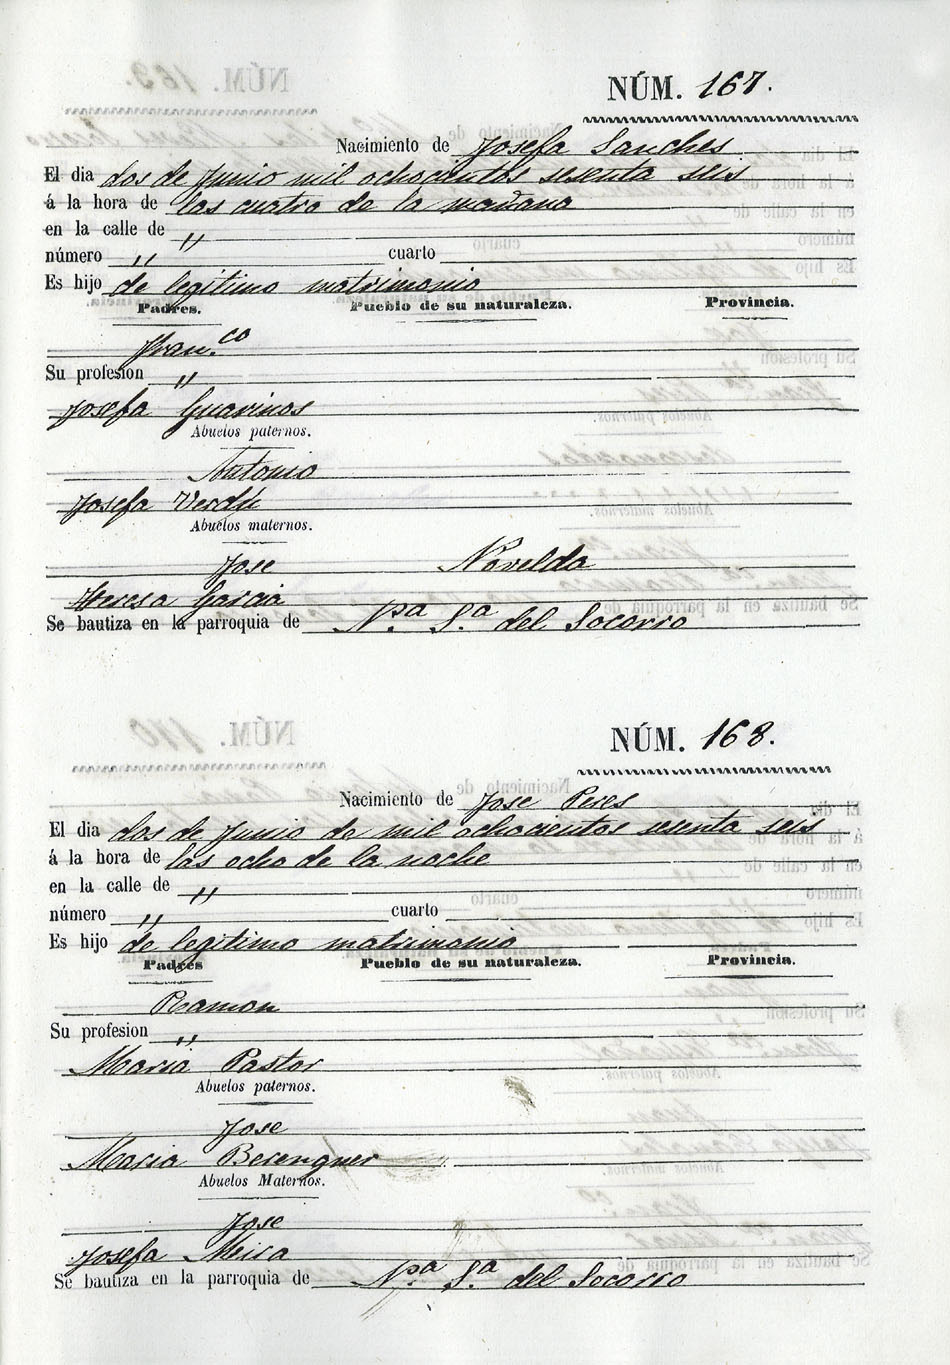 NÚM. 167.
Nacimiento de Josefa Sanches
El dia dos de Junio mil ochocientos sesenta seis
á la hora de las cuatro de la mañana
en la calle de "
número " cuarto
Es hijo de legitimo matrimonio
Padres. Pueblo de su naturaleza. Provincia.
Fran.co
Su profesion "
Josefa Guarinos
Abuelos paternos.
Antonio
Josefa Verdú
Abuelos maternos.
Jose Novelda
Teresa Garcia
Se bautiza en la parroquia de N.ra S.a del Socorro
NÚM. 168.
Nacimiento de Jose Peres
El dia dos de Junio de mil ochocientos sesenta seis
á la hora de las ocho de la noche
en la calle de "
número " cuarto
Es hijo de legitimo matrimonio
Padres Pueblo de su naturaleza. Provincia.
Ramon
Su profesion "
Maria Pastor
Abuelos paternos.
Jose
Maria Berenguer
Abuelos Maternos.
Jose
Josefa Mira
Se bautiza en la parroquia de N.ra S.a del Socorro